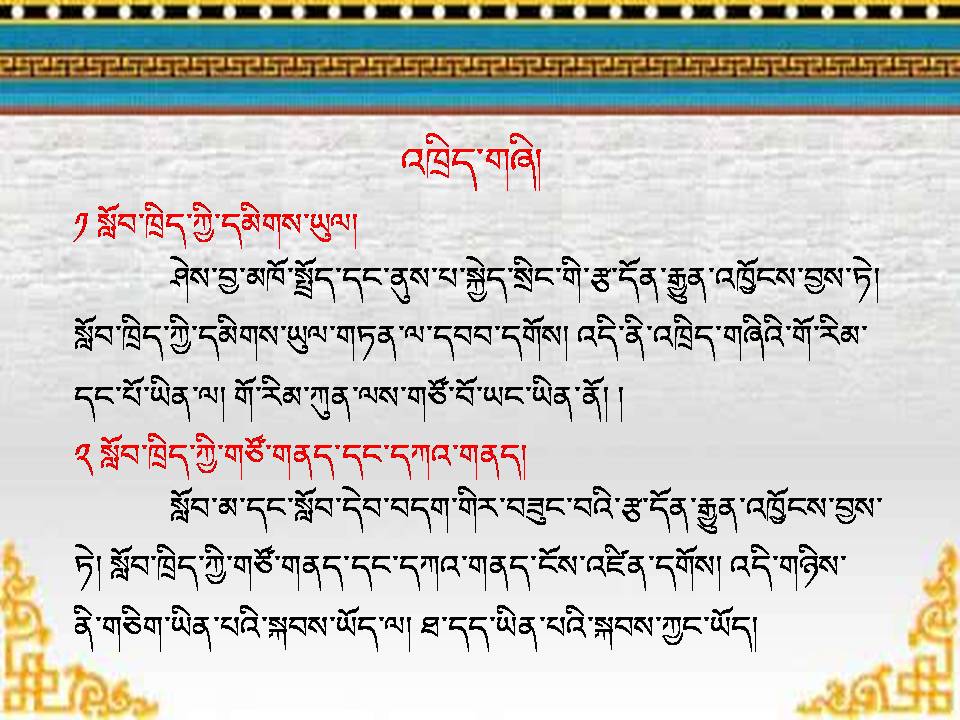 འཁྲིད་གཞི།
༡ སློབ་ཁྲིད་ཀྱི་དམིགས་ཡུལ།
ཤེས་བྱ་མཁོ་སྤྲོད་དང་ནུས་པ་སྐྱེད་སྲིང་གི་རྩ་དོན་རྒྱུན་འཁྱོངས་བྱས་ཏེ།
སློབ་ཁྲིད་ཀྱི་དམིགས་ཡུལ་གཏན་ལ་དབབ་དགོས། འདི་ནི་འཁྲིད་གཞིའི་གོ་རིམ་
དང་པོ་ཡིན་ལ། གོ་རིམ་ཀུན་ལས་གཙོ་བོ་ཡང་ཡིན་ནོ། །
༢ སློབ་ཁྲིད་ཀྱི་གཙོ་གནད་དང་དཀའ་གནད།
སློབ་མ་དང་སློབ་དེབ་བདག་གིར་བཟུང་བའི་རྩ་དོན་རྒྱུན་འཁྱོངས་བྱས་
ཏེ། སློབ་ཁྲིད་ཀྱི་གཙོ་གནད་དང་དཀའ་གནད་ངོས་འཛིན་དགོས། འདི་གཉིས་
ནི་གཅིག་ཡིན་པའི་སྐབས་ཡོད་ལ། ཐ་དད་ཡིན་པའི་སྐབས་ཀྱང་ཡོད།